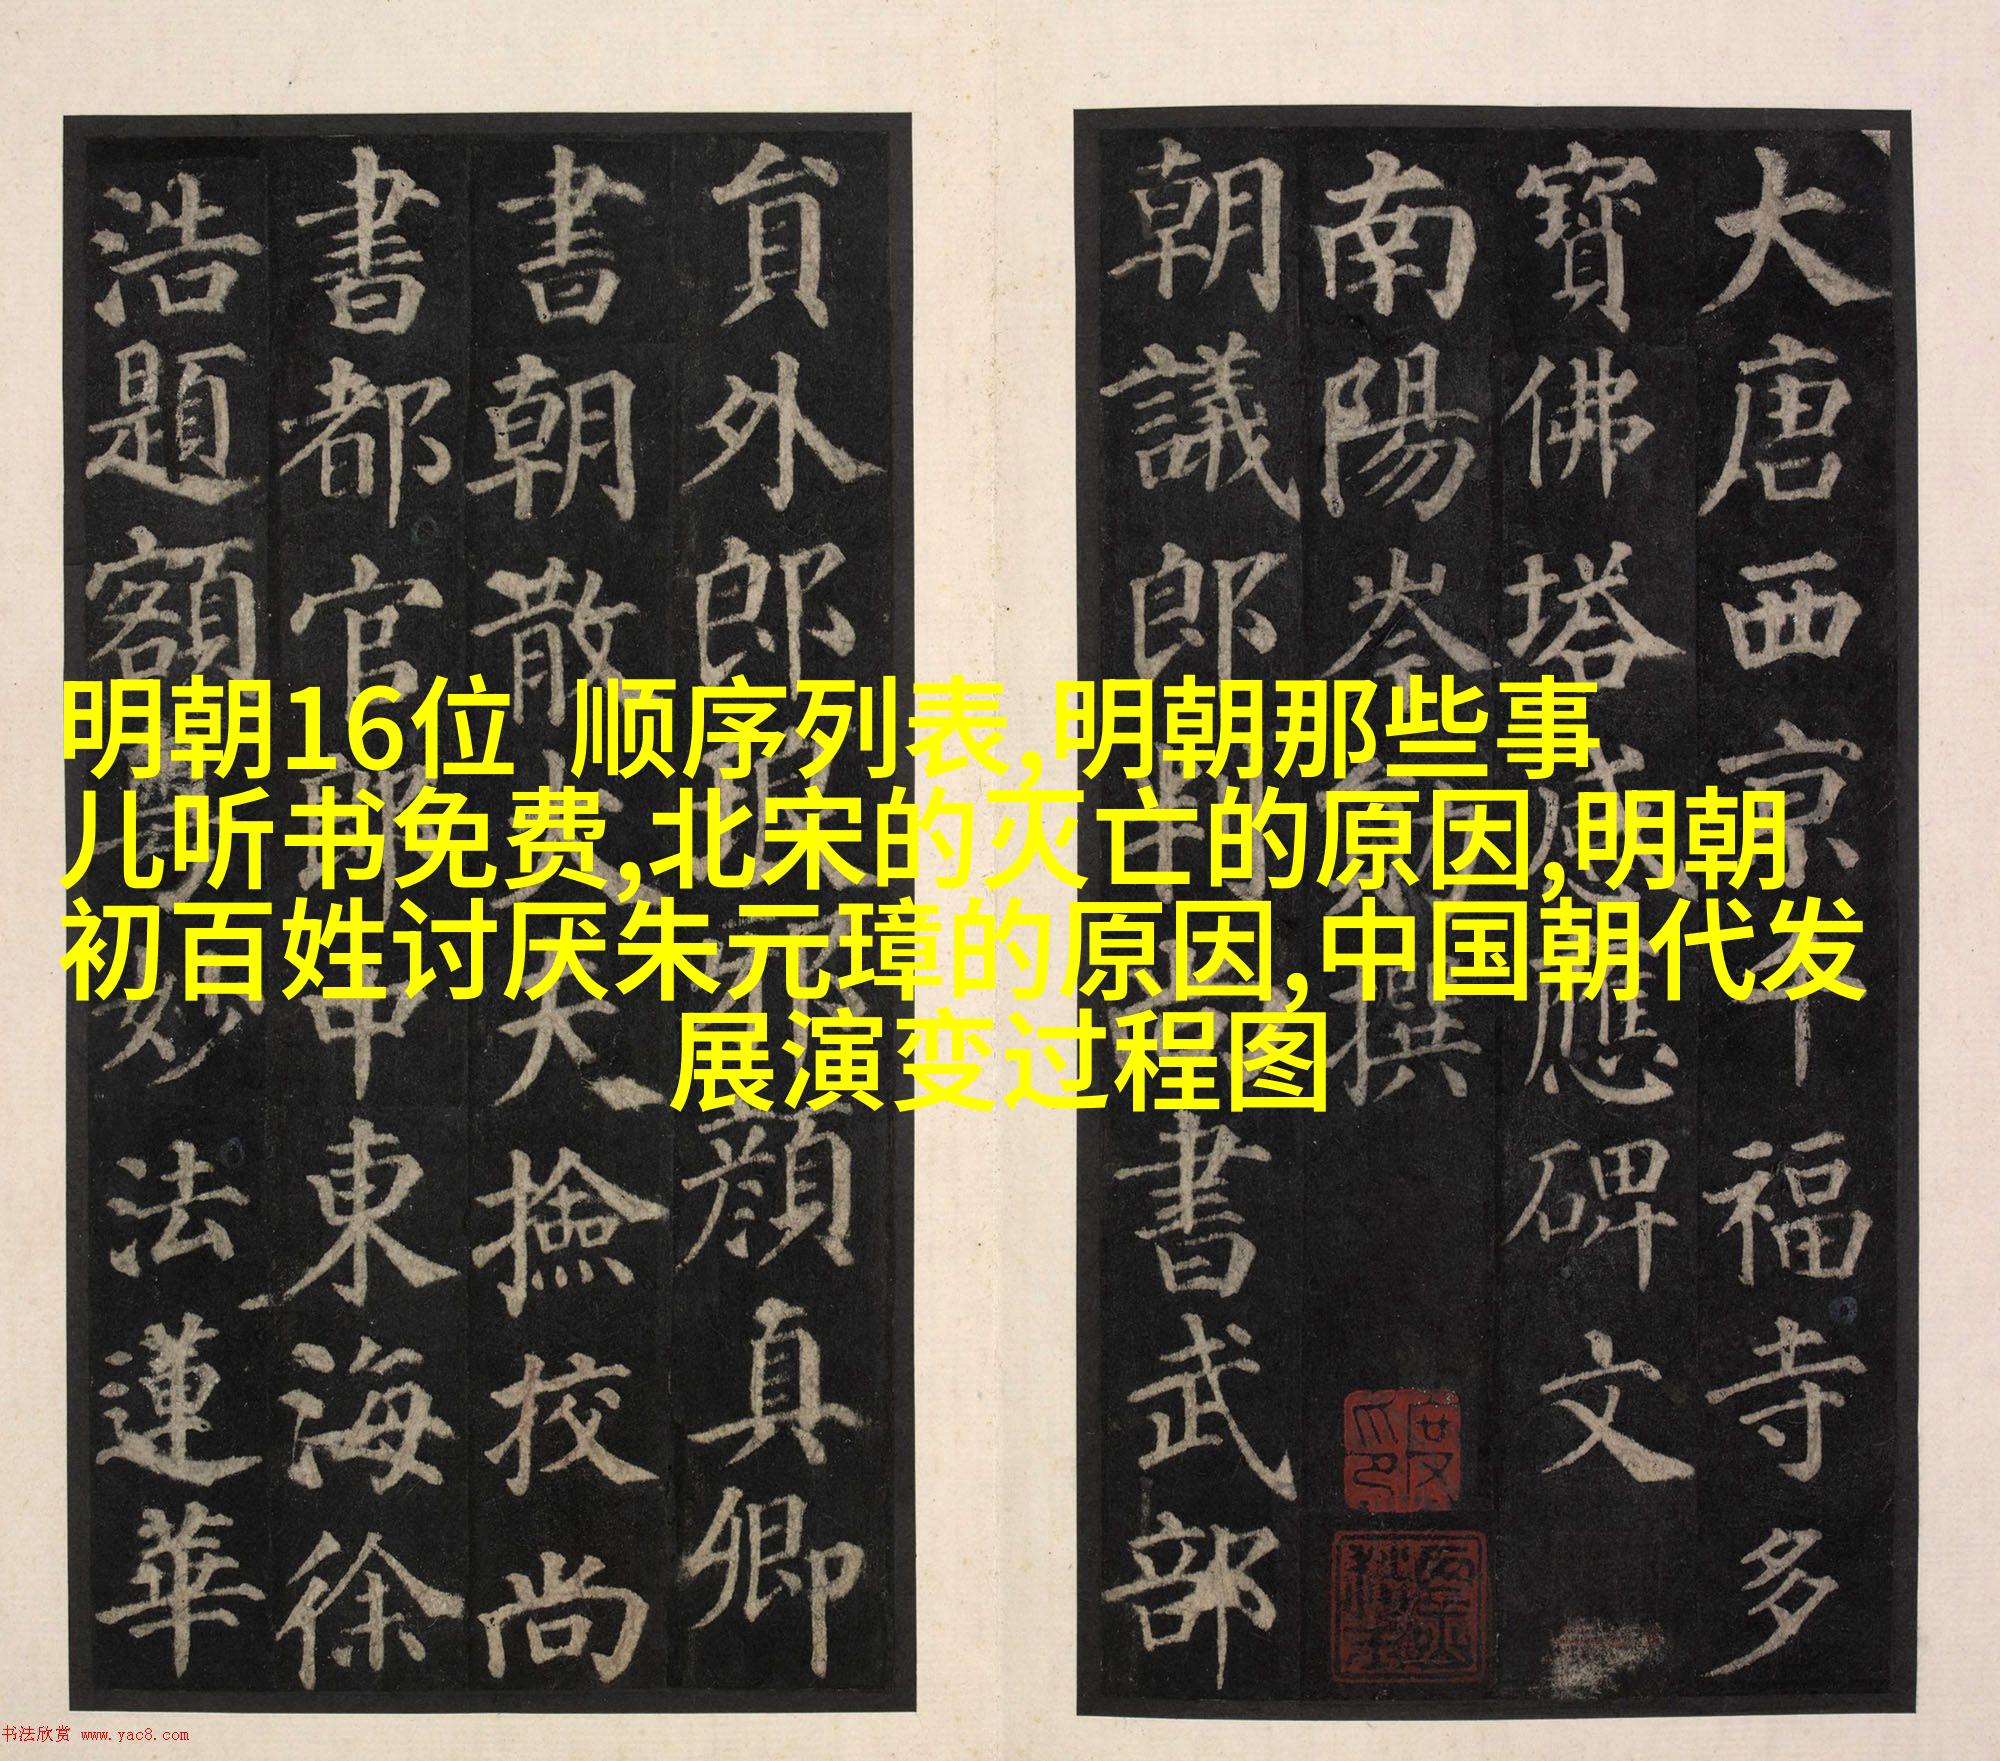 明朝16位 顺序列表,明朝那些事
儿听书免费,北宋的灭亡的原因,明朝
初百姓讨厌朱元璋的原因,中国朝代发
展演变过程图
大唐西京千福寺多
寶佛塔感應碑文
南陽岑撰
朝議郎判書武部
貟外郎顏真卿
書朝散大夫撿校尚
書都官郎中東海徐
浩題額妙法蓮華
书法欣赏 www.yac8.com